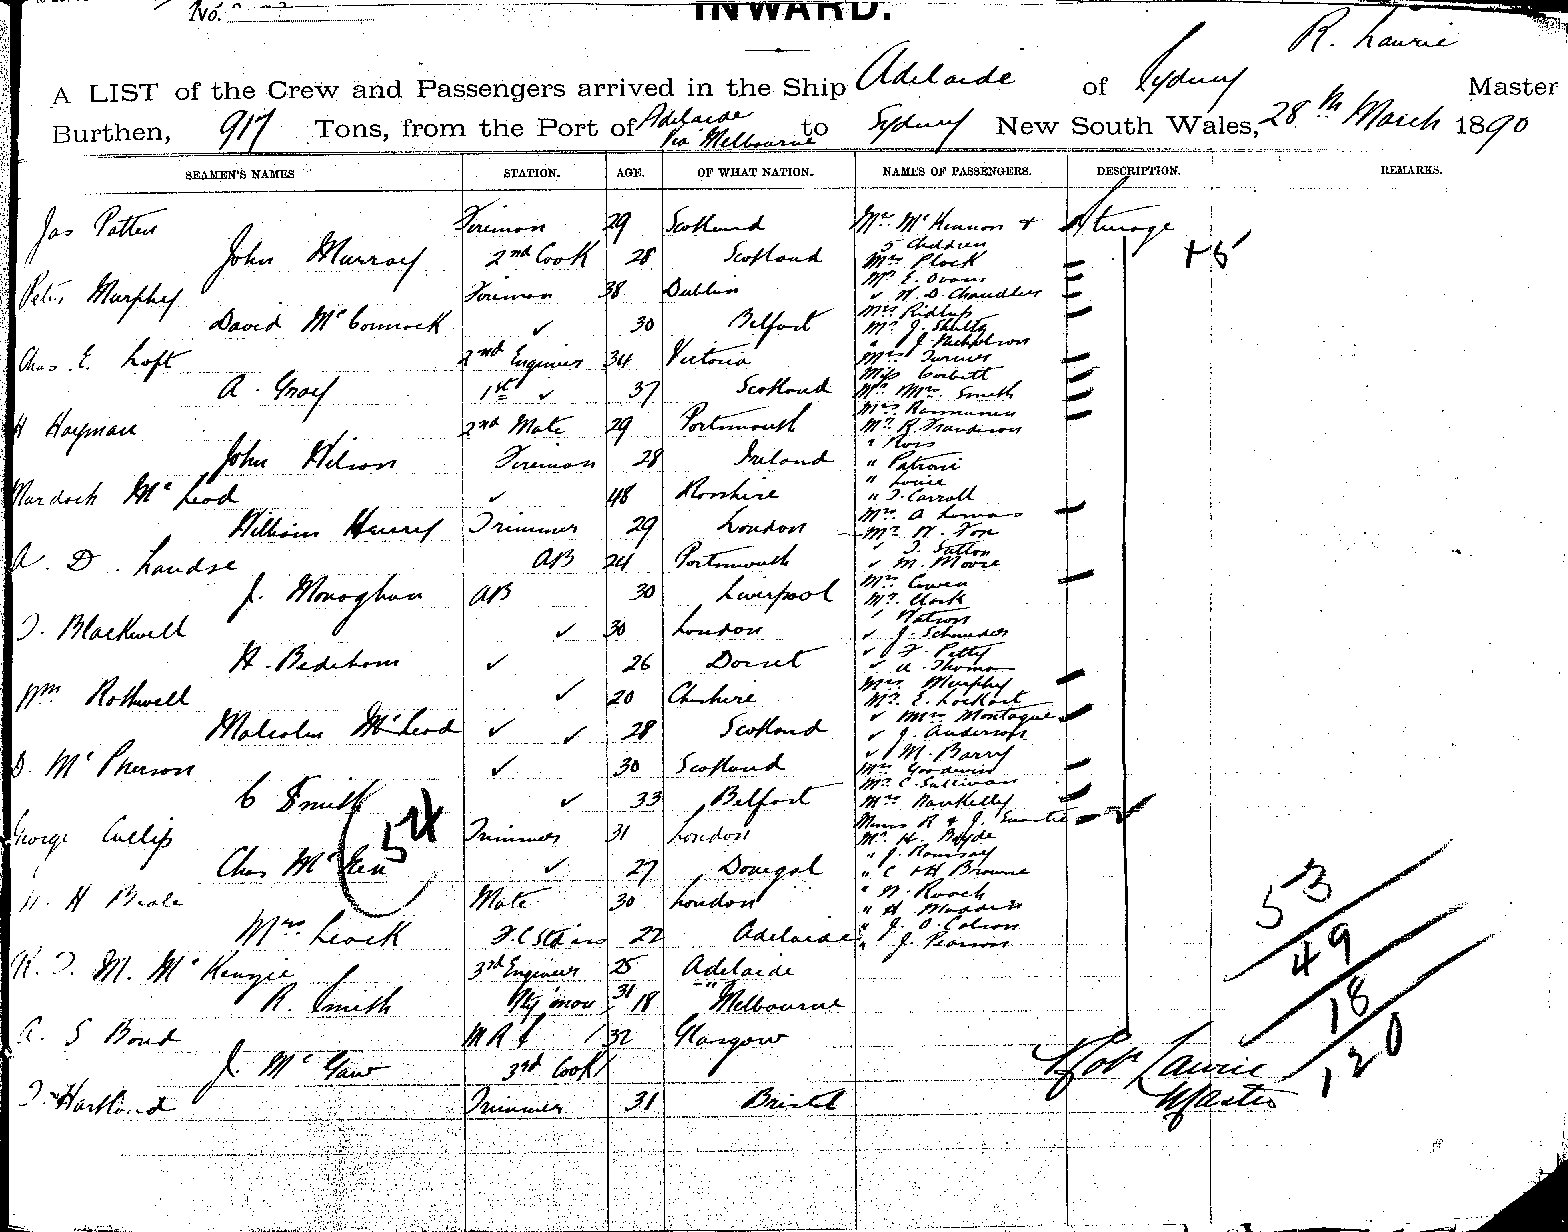 No.
INWARD.
R. Laurie
A LIST of the Crew and Passengers arrived in the Ship Adelaide of Sydney Master
Burthen, 917 Tons, from the Port of Adelaide Via Melbourne to Sydney New South Wales, 28th March 1890
SEAMEN'S NAMES STATION. AGE. OF WHAT NATION. NAMES OF PASSENGERS. DESCRIPTION. REMARKS.
Jas Patten Fireman 29 Scotland Mrs McKinnon & Steerage
5 Children
John Murray 2nd Cook 28 Scotland Mrs Plock
+5
Mr E. Evans
Peter Murphy Fireman 38 Dublin " W. D. Chandler
Mrs Ridlap
David McCormack ✓ 30 Belfast Mr J. Shultz
" J. Nicholson
Chas E. Loft 2nd Engineer 34 Victoria Mrs Turner
Miss Corbett
A. Gray 1st ✓ 37 Scotland Mr Mrs Smith
Mrs Rasmussen
H Hayman 2nd Mate 29 Portsmouth Mr R.
" Ross
John Wilson Fireman 28 Ireland " Patroni
" Louie
Murdoch McLeod ✓ 48 Rosshire " T. Carroll
Mrs A
William Henry Trimmer 29 London Mr W. Fox
✓ T. Sutton
A. D. AB 24 Portsmouth ✓ M. Moore
Mrs Cowen
J. Monaghan AB 30 Liverpool Mr Clock
✓ Watson
T. Blackwell ✓ 30 London ✓ J. Schneider
✓ F. Petty
H. ✓ 26 Dorset ✓ A. Thomas
Mrs Murphy
Wm Rothwell ✓ 20 Cheshire Mr E. Lockhart
✓ Mrs Montague
Malcolm McLeod ✓ ✓ 28 Scotland ✓ J. Anderson
✓ M. Barry
D. McPherson ✓ 30 Scotland Mrs Goodwin
Mr C. Sullivan
C Smith ✓ 33 Belfast Mrs
54
R & J.
George Cullip Trimmer 31 London Mr H. Boyde
" J. Ramsay
Chas ✓ 27 Donegal " C & H Browne
53
W. H Beale Mate 30 London " W. Roach
" H Madden
Mrs Leock 22 Adelaide " J. O. Colson
49
" J. Pearson
M. McKenzie 3rd Engineer 25 Adelaide
R. Smith 18 " Melbourne
18
A. S Bond 32 Glasgow
J. McGaw 3rd Cook
Robt Laurie
120
Master
T. Hartland Trimmer 31 Bristol